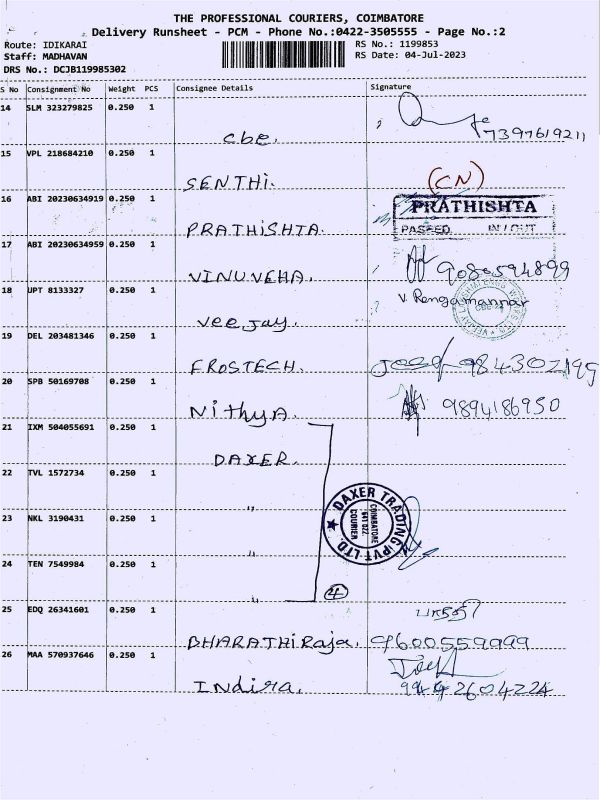 THE PROFESSIONAL COURIERS, COIMBATORE
Delivery Runsheet - PCM - Phone No.:0422-3505555 - Page No.:2
Route: IDIKARAI
RS No.: 1199853
Staff: MADHAVAN
RS Date: 04-Jul-2023
DRS No.: DCJB119985302
S No Consignment No Weight PCS Consignee Details Signature
14 SLM 323279825 0.250 1
cbe. 7397619211
15 VPL 218684210 0.250 1
SENTHi. (CN)
16 ABI 20230634919 0.250 1
PRATHISHTA
PASSED IN / OUT
PRATHiSHTA.
17 ABI 20230634959 0.250 1
VINUVEHA. 9080594899
18 UPT 8133327 0.250 1
V. Rengamannar
veejay.
19 DEL 203481346 0.250 1
FROSTECH. 984302199
20 SPB 50169708 0.250 1
Nithya. 9894186950
21 IXM 504055691 0.250 1
DAXER.
22 TVL 1572734 0.250 1
"
DAXER TRADING (PVT) LTD.
COIMBATORE
641 022.
COURIER
23 NKL 3190431 0.250 1
"
24 TEN 7549984 0.250 1
" 4
25 EDQ 26341601 0.250 1
BHARATHiRaja. 9600559999
26 MAA 570937646 0.250 1
Indira. 9442604224